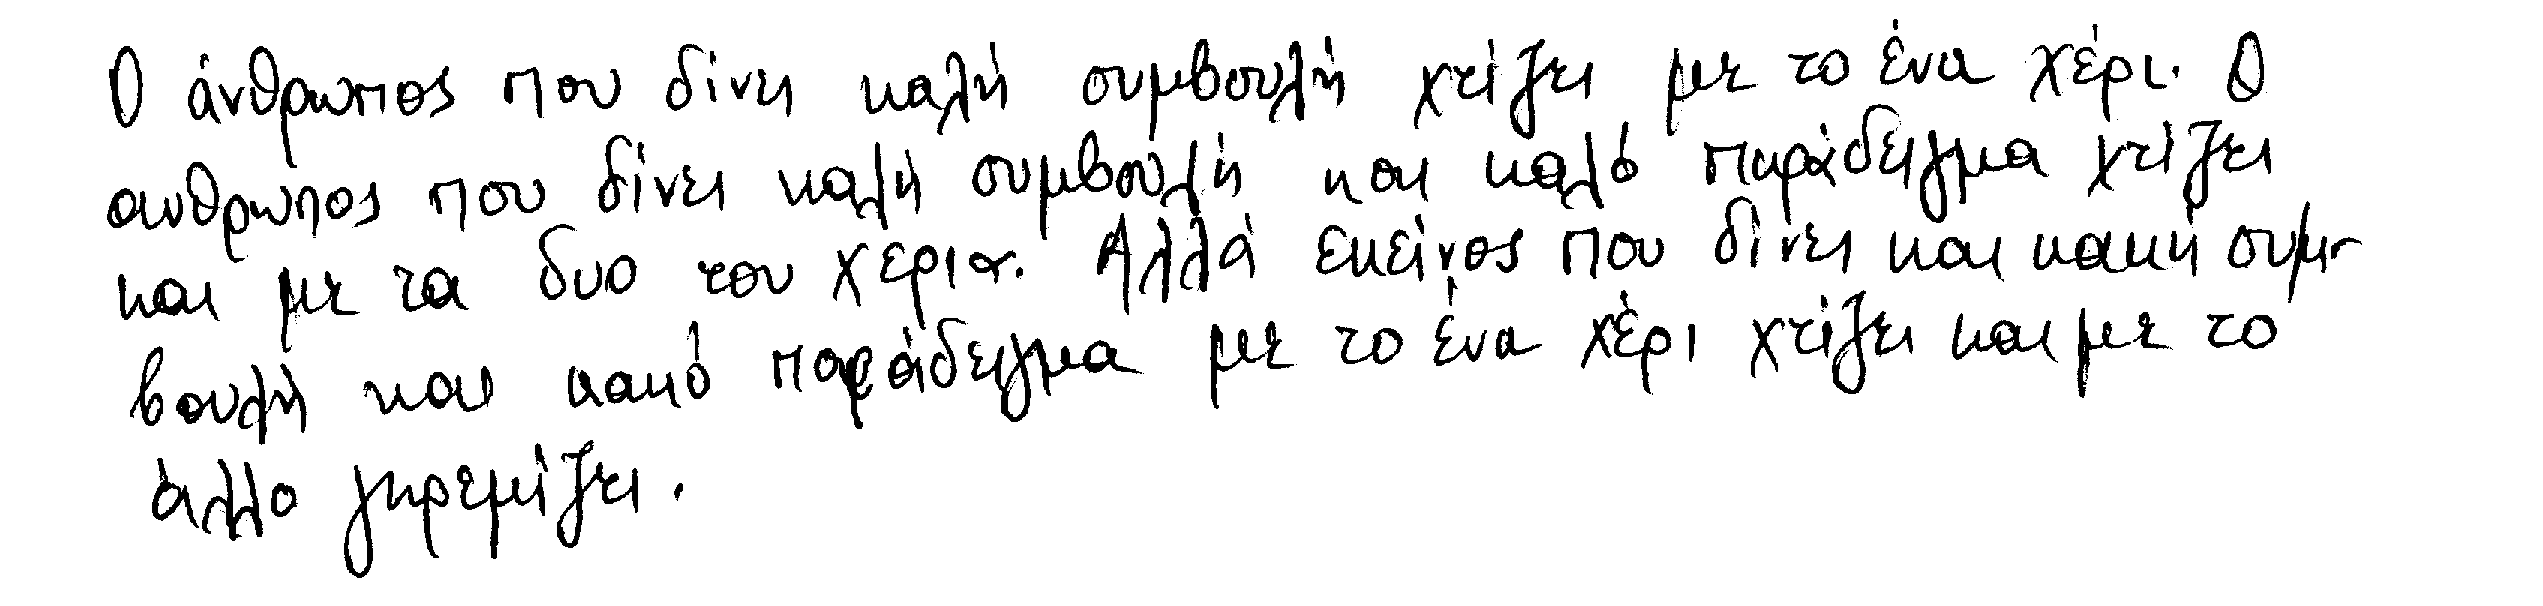 Ο άνθρωπος που δίνει καλή συμβουλή χτίζει με το ένα χέρι. Ο
ανθρωπος που δίνει καλή συμβουλή και καλό παράδειγμα χτίζει
και με τα δυο του χερια. Αλλά εκείνος που δίνει και κακή συμ-
βουλή και κακό παράδειγμα με το ένα χέρι χτίζει και με το
άλλο γκρεμίζει.